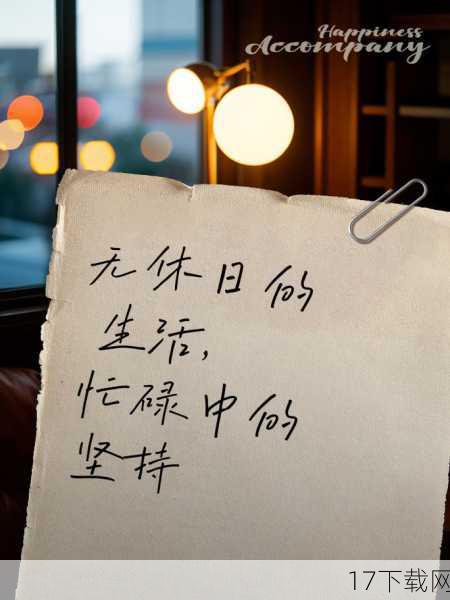 Happiness
Accompany
无休日的
生活,
忙碌中的
坚持
17下载网